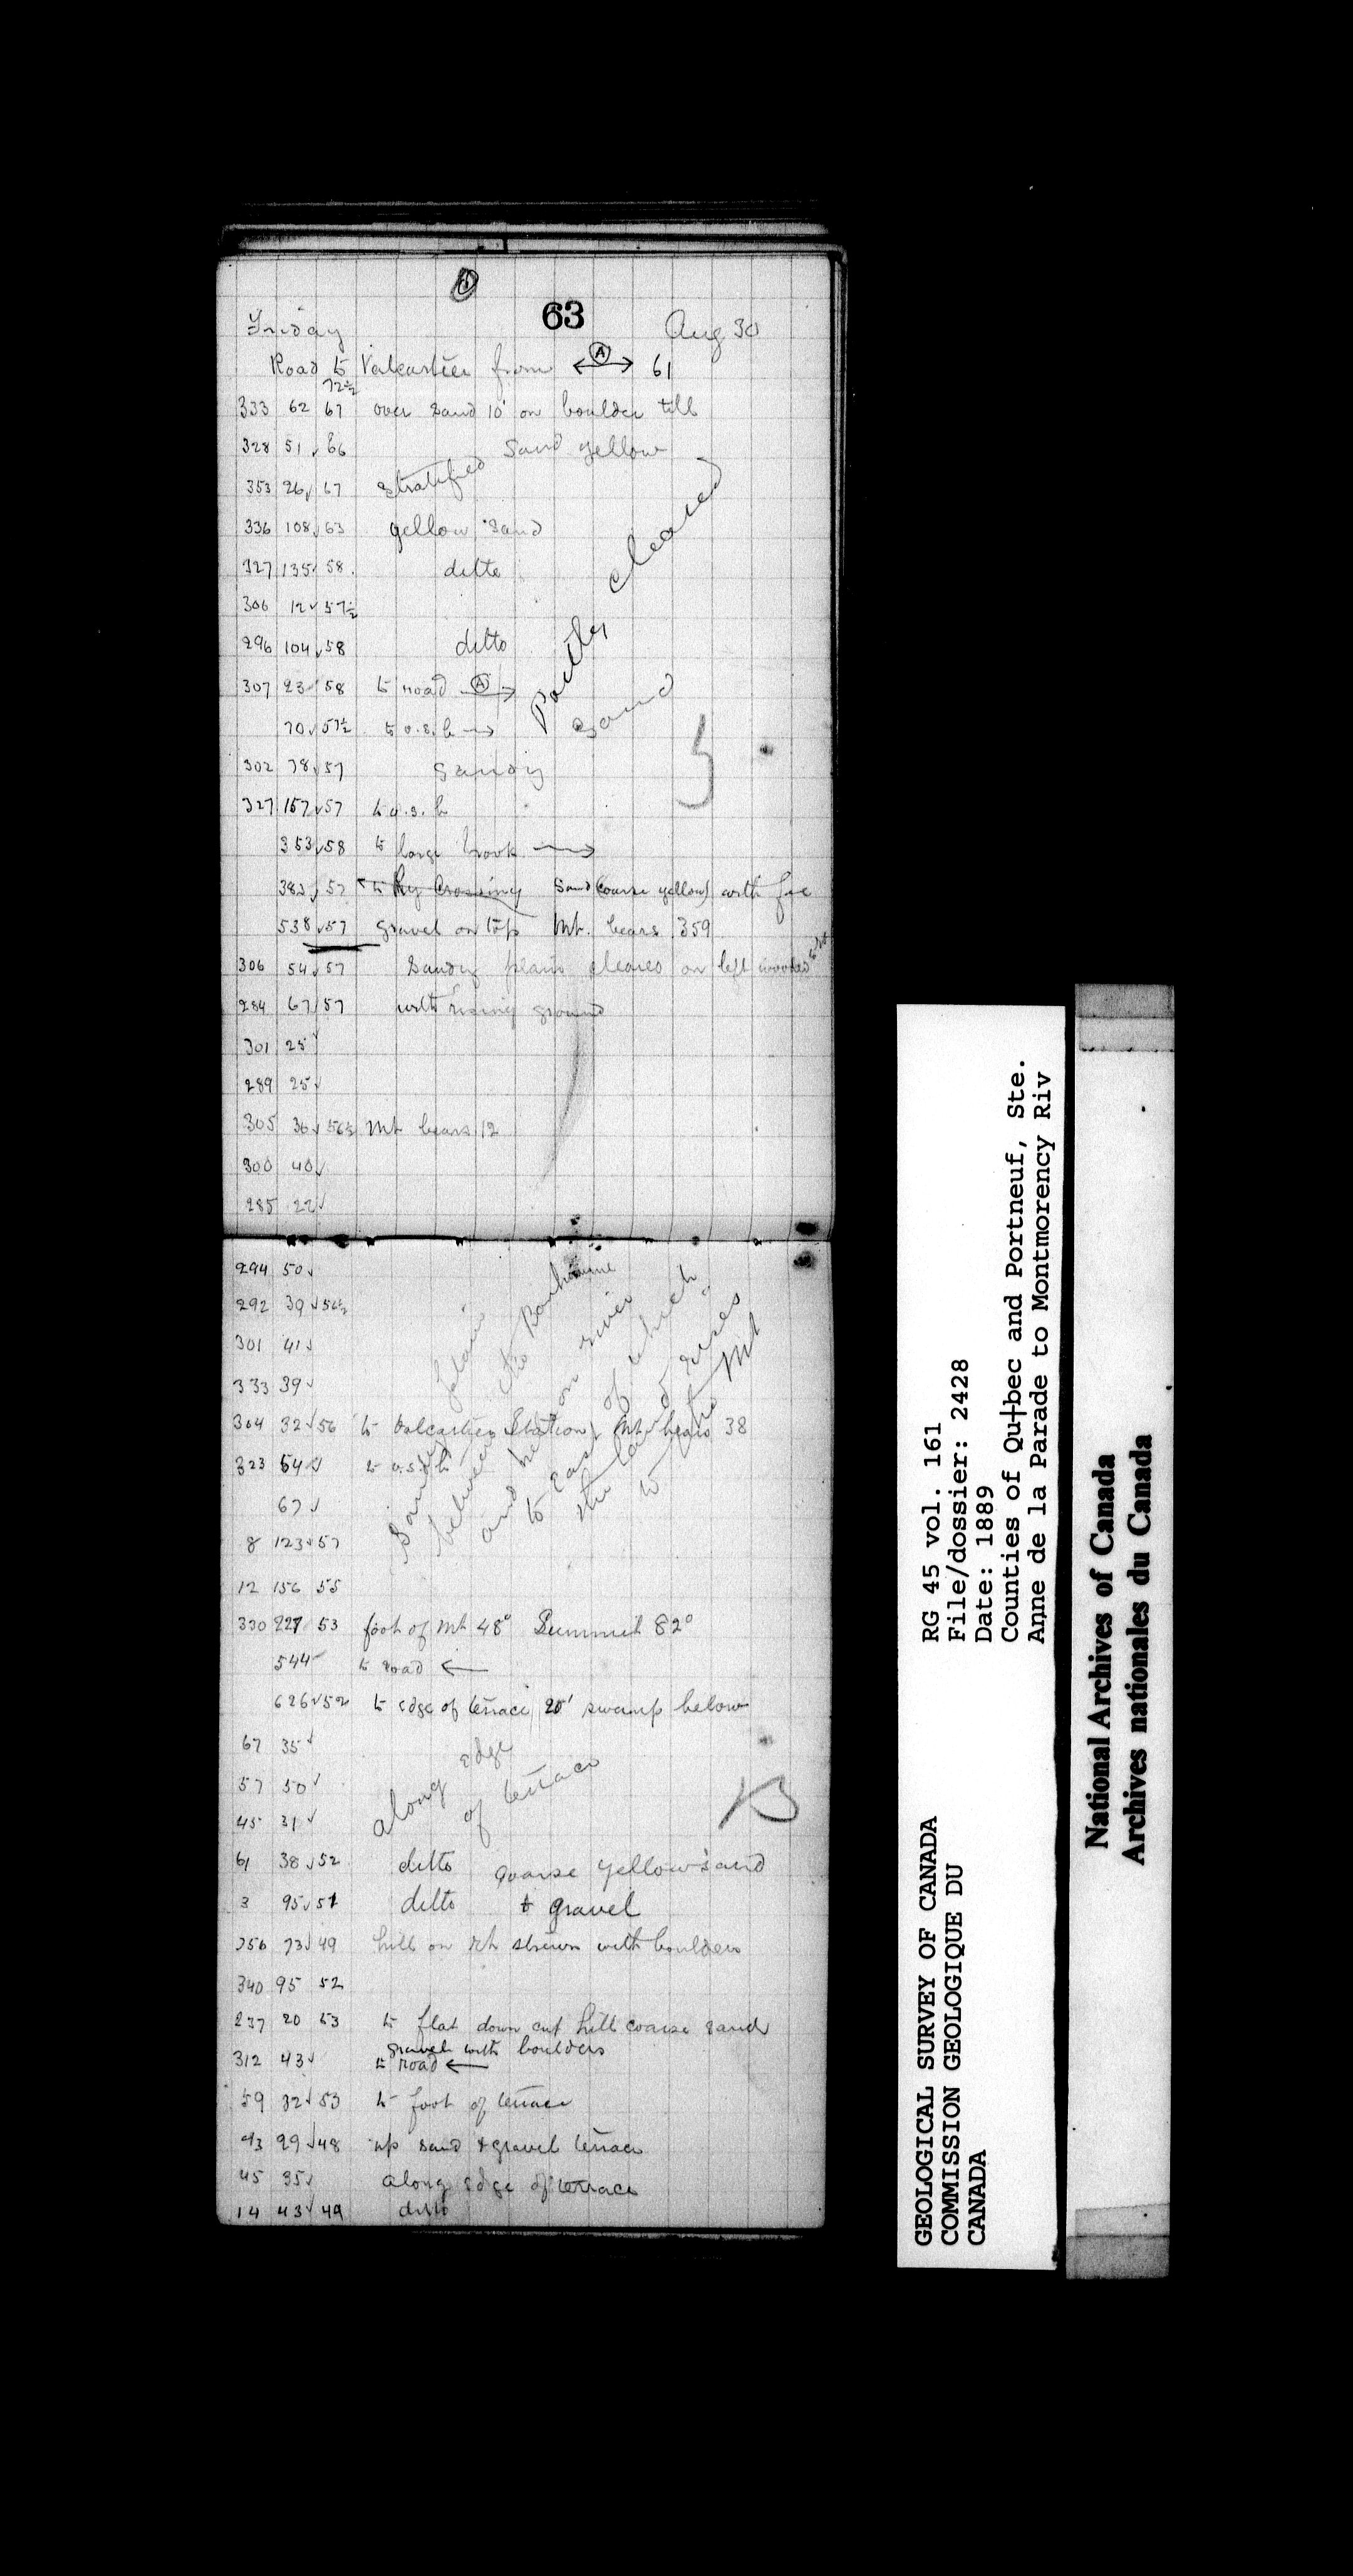 63
Friday Aug 30
Road to Valcartier from ← Ⓐ → 61
72½
333 62 67 over sand 10' on boulder till
328 51 √ 66 Sand yellow
353 26 √ 67 stratified
336 108 √ 63 yellow sand
327 135 √ 58 ditto
306 12 √ 57½
296 104 √ 58 ditto
307 23 √ 58 to road Ⓐ →
Partly cleared
sand
70 √ 57½ to o.s.h →
5
302 78 √ 57 Sandy
327 157 √ 57 to o.s.h
353 √ 58 to large brook →
382 √ 57 to Ry Crossing Sand (coarse yellow) with
538 √ 57 gravel on top Mt. bears 359
306 54 √ 57 Sandy plain cleared on left wooded
284 67 √ 57 with rising ground
301 25 √
289 25 √
305 36 √ 56½ Mt bears 12
300 40 √
285 22 √
294 50 √
292 39 √ 56½
301 41 √
333 39 √
304 32 √ 56 to Valcartier Station Mt bears 38
323 54 √ to o.s.h
67 √
8 123 √ 57
Sandy plain
between the
and river
to East of which
the land rises
to the Mt
12 156 55
330 227 53 foot of Mt 48° Summit 82°
544 to road ←
626 √ 52 to edge of terrace 20' swamp below
67 35 √
57 50 √
45 31 √
along edge
of terrace
B
61 38 √ 52 ditto coarse yellow sand
3 95 √ 51 ditto + gravel
356 73 √ 49 hill on rt strewn with boulders
340 95 52
237 20 53 to flat down cut hill coarse sand
gravel with boulders
312 43 √ to road ←
59 32 √ 53 to foot of terrace
93 29 √ 48 up sand + gravel terrace
45 35 √ along edge of terrace
14 43 √ 49 ditto
GEOLOGICAL SURVEY OF CANADA
COMMISSION GEOLOGIQUE DU
CANADA
RG 45 vol. 161
File/dossier: 2428
Date: 1889
Counties of Qu†bec and Portneuf, Ste.
Anne de la Parade to Montmorency Riv
National Archives of Canada
Archives nationales du Canada